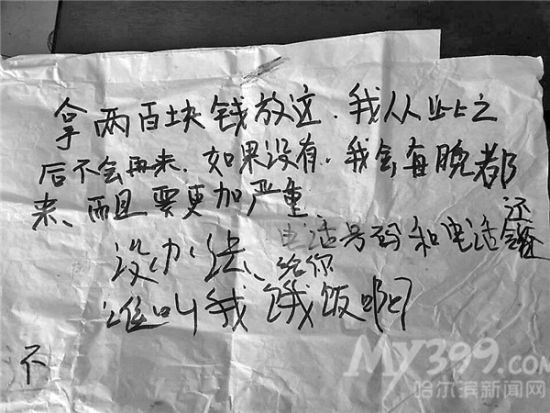 拿两百块钱放这.我从此之
后不会再来.如果没有.我会每晚都
来、而且要更加严重.
电话号码和电话还
没办法、给你
谁叫我饿饭啊?
不
MY399.com
哈尔滨新闻网